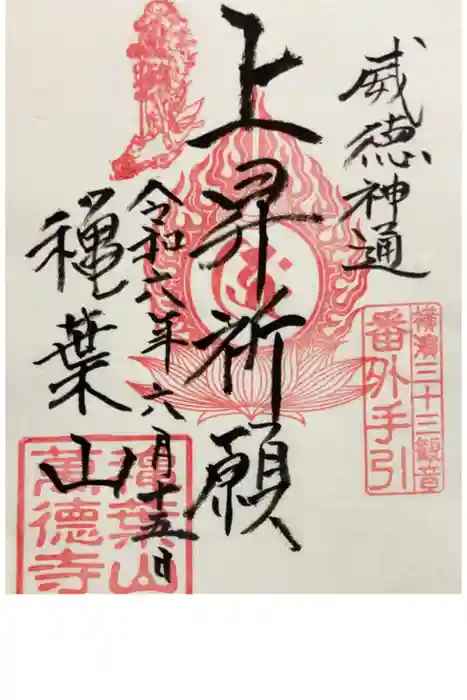 威徳神通
横濱三十三観音
番外手引
上昇祈願
令和六年六月十五日
穐葉山
穐葉山
萬德寺